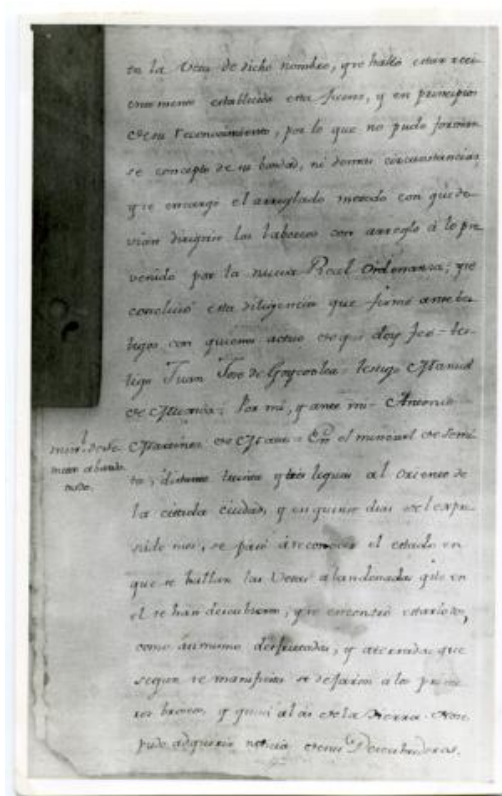 to la Veta de dicho nombre, que halló estar reci
enemente establecida esta faena, y en principios
de su reconocimiento, por lo que no pudo formar
se concepto de su bondad, ni demas circunstancias,
que encargó el arreglado metodo con que de
vian dirigirse las labores con arreglo á lo pre
venido por la nueva Real Ordenanza; y se
concluió esta diligencia que firmé ante tes
tigos con quienes actuo de que doy fee= tes
tigo Juan José de Goycoolea= testigo Manuel
de = Por mi, y ante mi= Antonio
Martinez de Mata= En el mineral de
minl. de
mover abando
nado.
to, distante treinta y tres leguas al Oriente de
la citada ciudad, y en quince dias del expre
sado mes, se pasó á reconocer el estado en
que se hallan las Vetas abandonadas que en
el se han descubierto, y se encontró estarlo,
como asimismo desfrutadas, y aterradas que
segun se manifiesta se dejaron a los prime
ros brozeos, y guias al as de la tierra. Non
pudo adquirir noticia de sus Descubridores.